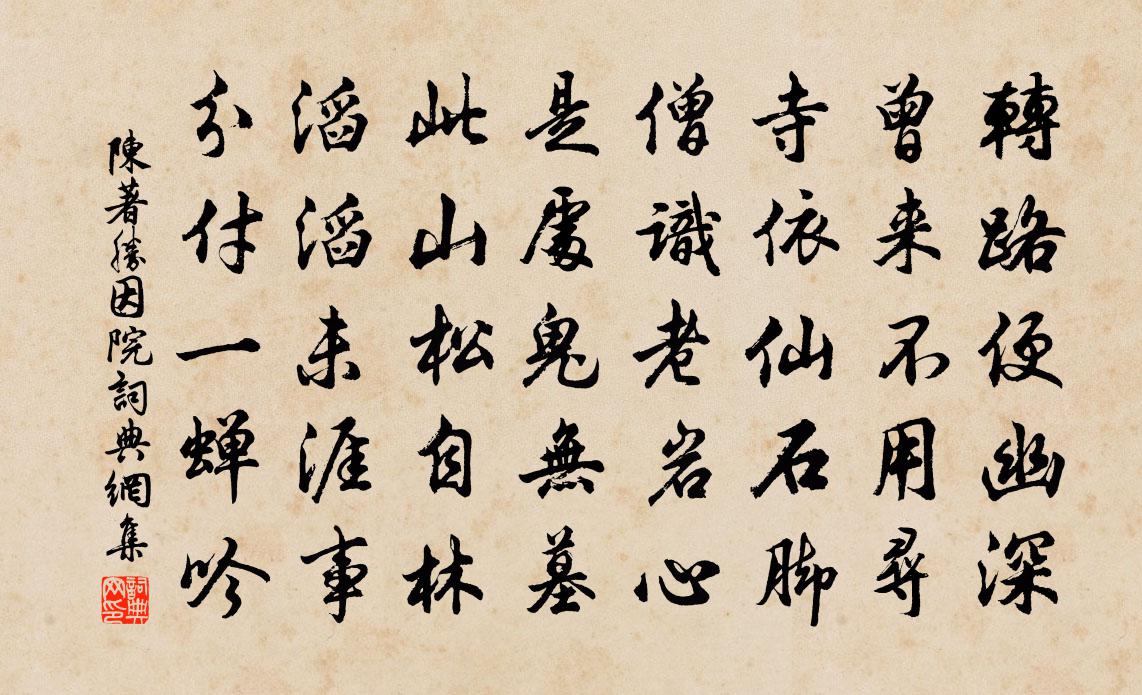 轉路便幽深
曾来不用尋
寺依仙石脚
僧識老岩心
是處鬼無墓
此山松自林
滔滔未涯事
分付一蝉吟
陳著勝因院詞典網集
詞典網印